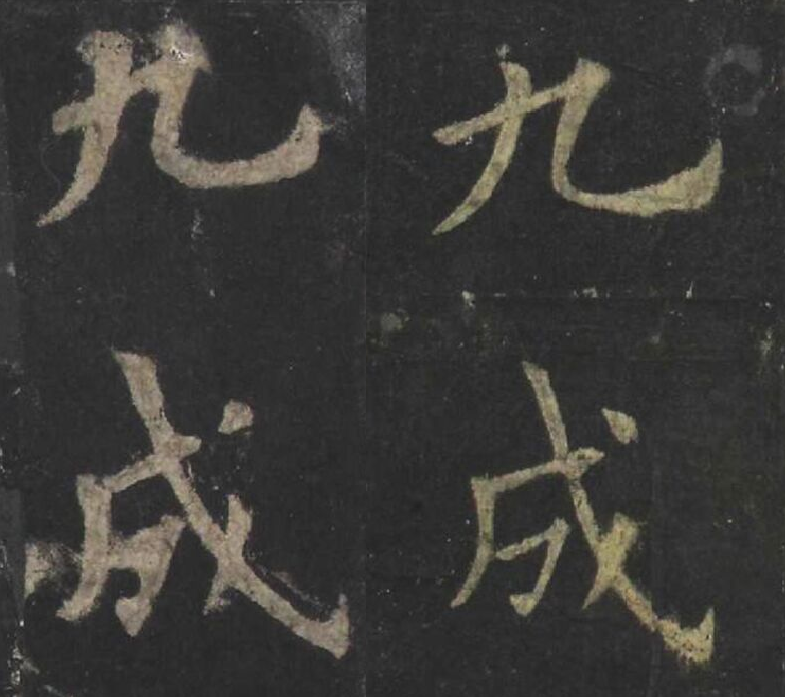 九成
九成